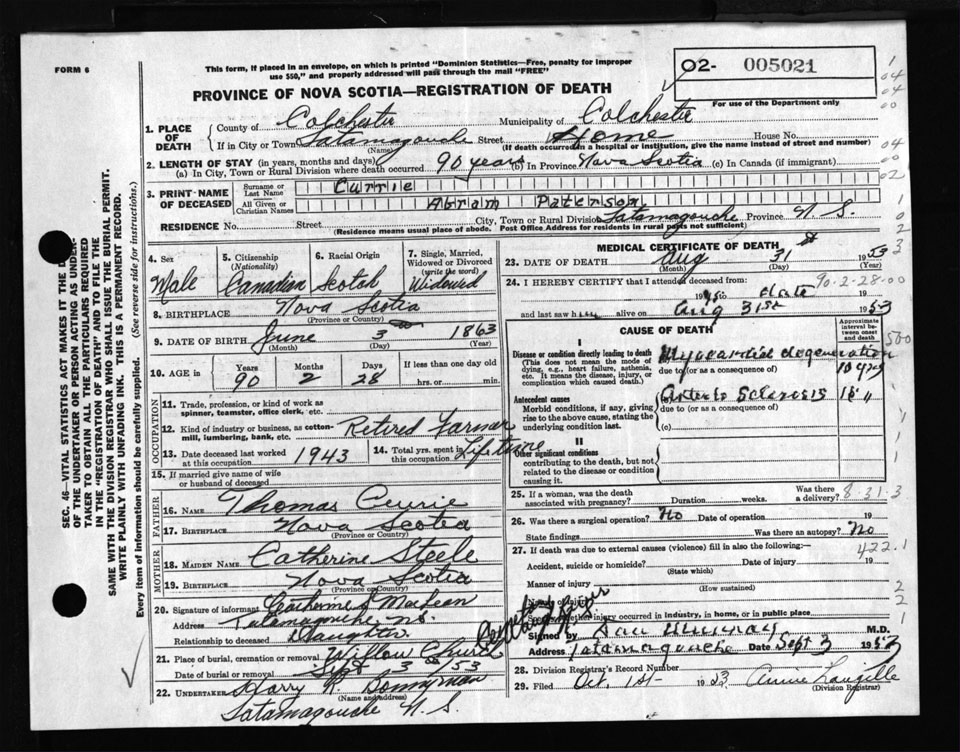 FORM 6
This form, if placed in an envelope, on which is printed "Dominion Statistics—Free, penalty for improper
use $50," and properly addressed will pass through the mail "FREE"
02- 005021
For use of the Department only
PROVINCE OF NOVA SCOTIA—REGISTRATION OF DEATH
1. PLACE OF DEATH
County of Colchester Municipality of Colchester
If in City or Town Tatamagouche Street Home House No.
(Name) (If death occurred in a hospital or institution, give the name instead of street and number)
2. LENGTH OF STAY (in years, months and days)
(a) In City, Town or Rural Division where death occurred 90 years (b) In Province Nova Scotia (c) In Canada (if immigrant)
3. PRINT NAME OF DECEASED
Surname or Last Name Currie
All Given or Christian Names Abram Paterson
RESIDENCE No. Street City, Town or Rural Division Tatamagouche Province N.S.
(Residence means usual place of abode. Post Office Address for residents in rural parts not sufficient)
4. Sex Male
5. Citizenship (Nationality) Canadian
6. Racial Origin Scotch
7. Single, Married, Widowed or Divorced (write the word) Widowed
8. BIRTHPLACE Nova Scotia
(Province or Country)
9. DATE OF BIRTH June 3 1863
(Month) (Day) (Year)
10. AGE in Years 90 Months 2 Days 28 If less than one day
hrs. or min.
OCCUPATION
11. Trade, profession, or kind of work as
spinner, teamster, office clerk, etc.
12. Kind of industry or business, as cotton-
mill, lumbering, bank, etc. Retired Farmer
13. Date deceased last worked
at this occupation 1943
14. Total yrs. spent in
this occupation Lifetime
15. If married give name of wife
or husband of deceased
FATHER
16. NAME Thomas Currie
17. BIRTHPLACE Nova Scotia
(Province or Country)
MOTHER
18. MAIDEN NAME Catherine Steele
19. BIRTHPLACE Nova Scotia
(Province or Country)
20. Signature of informant Catherine MacLean
Address Tatamagouche N.S.
Relationship to deceased Daughter
21. Place of burial, cremation or removal Willow Church
Date of burial or removal Sept 3 /53
22. UNDERTAKER Harry R. Bonnyman
(Name and address)
Tatamagouche N.S.
MEDICAL CERTIFICATE OF DEATH
23. DATE OF DEATH Aug 31st 1953
(Month) (Day) (Year)
24. I HEREBY CERTIFY that I attended deceased from:
90-2-28-00
1945 to date 19
and last saw him alive on Aug 31st 1953
CAUSE OF DEATH
Approximate interval between onset and death
I
Disease or condition directly leading to death
(This does not mean the mode of
dying, e.g., heart failure, asthenia,
etc. It means the disease, injury, or
complication which caused death.)
Myocardial degeneration
due to (or as a consequence of) 10 yrs
Antecedent causes
Morbid conditions, if any, giving
rise to the above cause, stating the
underlying condition last.
Arterio Sclerosis 15 "
due to (or as a consequence of)
(c)
II
Other significant conditions
contributing to the death, but not
related to the disease or condition
causing it.
25. If a woman, was the death
associated with pregnancy? Duration weeks. Was there
a delivery? 8-31-3
26. Was there a surgical operation? No Date of operation 19
State findings Was there an autopsy? No
27. If death was due to external causes (violence) fill in also the following:—
422.1
Accident, suicide or homicide? Date of injury 19
(State which)
Manner of injury
(How sustained)
Nature of injury
Specify whether injury occurred in industry, in home, or in public place
Signed by Dan Murray M.D.
Address Tatamagouche Date Sept 3 1953
28. Division Registrar's Record Number
29. Filed Oct. 1st 1953 Annie Langille
(Division Registrar)
SEC. 46—VITAL STATISTICS ACT MAKES IT THE D
OF THE UNDERTAKER OR PERSON ACTING AS UNDER-
TAKER TO OBTAIN ALL THE PARTICULARS REQUIRED
IN THE "REGISTRATION OF DEATH" AND TO FILE THE
SAME WITH THE DIVISION REGISTRAR WHO SHALL ISSUE THE BURIAL PERMIT.
WRITE PLAINLY WITH UNFADING INK. THIS IS A PERMANENT RECORD.
Every item of information should be carefully supplied. (See reverse side for instructions.)